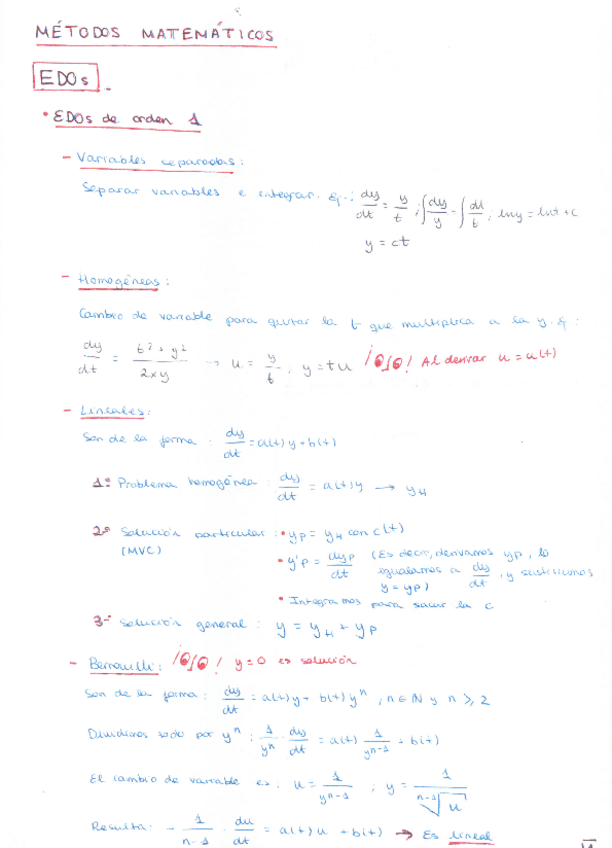 MÉTODOS MATEMÁTICOS
EDOs.
• EDOs de orden 1
- Variables separadas:
Separar variables e integrar. Ej.: dy/dt = y/t ; ∫dy/y = ∫dt/t ; lny = lnt + c
y = ct
- Homogéneas:
Cambio de variable para quitar la t que multiplica a la y. Ej:
dy/dt = (t² + y²)/(2xy) → u = y/t, y = tu ¡OJO! Al derivar u = u(t)
- Lineales:
Son de la forma: dy/dt = a(t)y + b(t)
1º Problema homogéneo: dy/dt = a(t)y → yH
2º Solución particular: • yp = yH con c(t)
(MVC) • y'p = dyp/dt (Es decir, derivamos yp, lo
igualamos a dy/dt, y sustituimos
y = yp)
• Integramos para sacar la c
3º Solución general: y = yH + yp
- Bernouilli: ¡OJO! y=0 es solución
Son de la forma: dy/dt = a(t)y + b(t)yⁿ, n ∈ N y n ≥ 2
Dividimos todo por yⁿ: 1/yⁿ · dy/dt = a(t) 1/yⁿ⁻¹ + b(t)
El cambio de variable es: u = 1/yⁿ⁻¹ ; y = 1/ⁿ⁻¹√u
Resulta: - 1/(n-1) · du/dt = a(t)u + b(t) → Es lineal